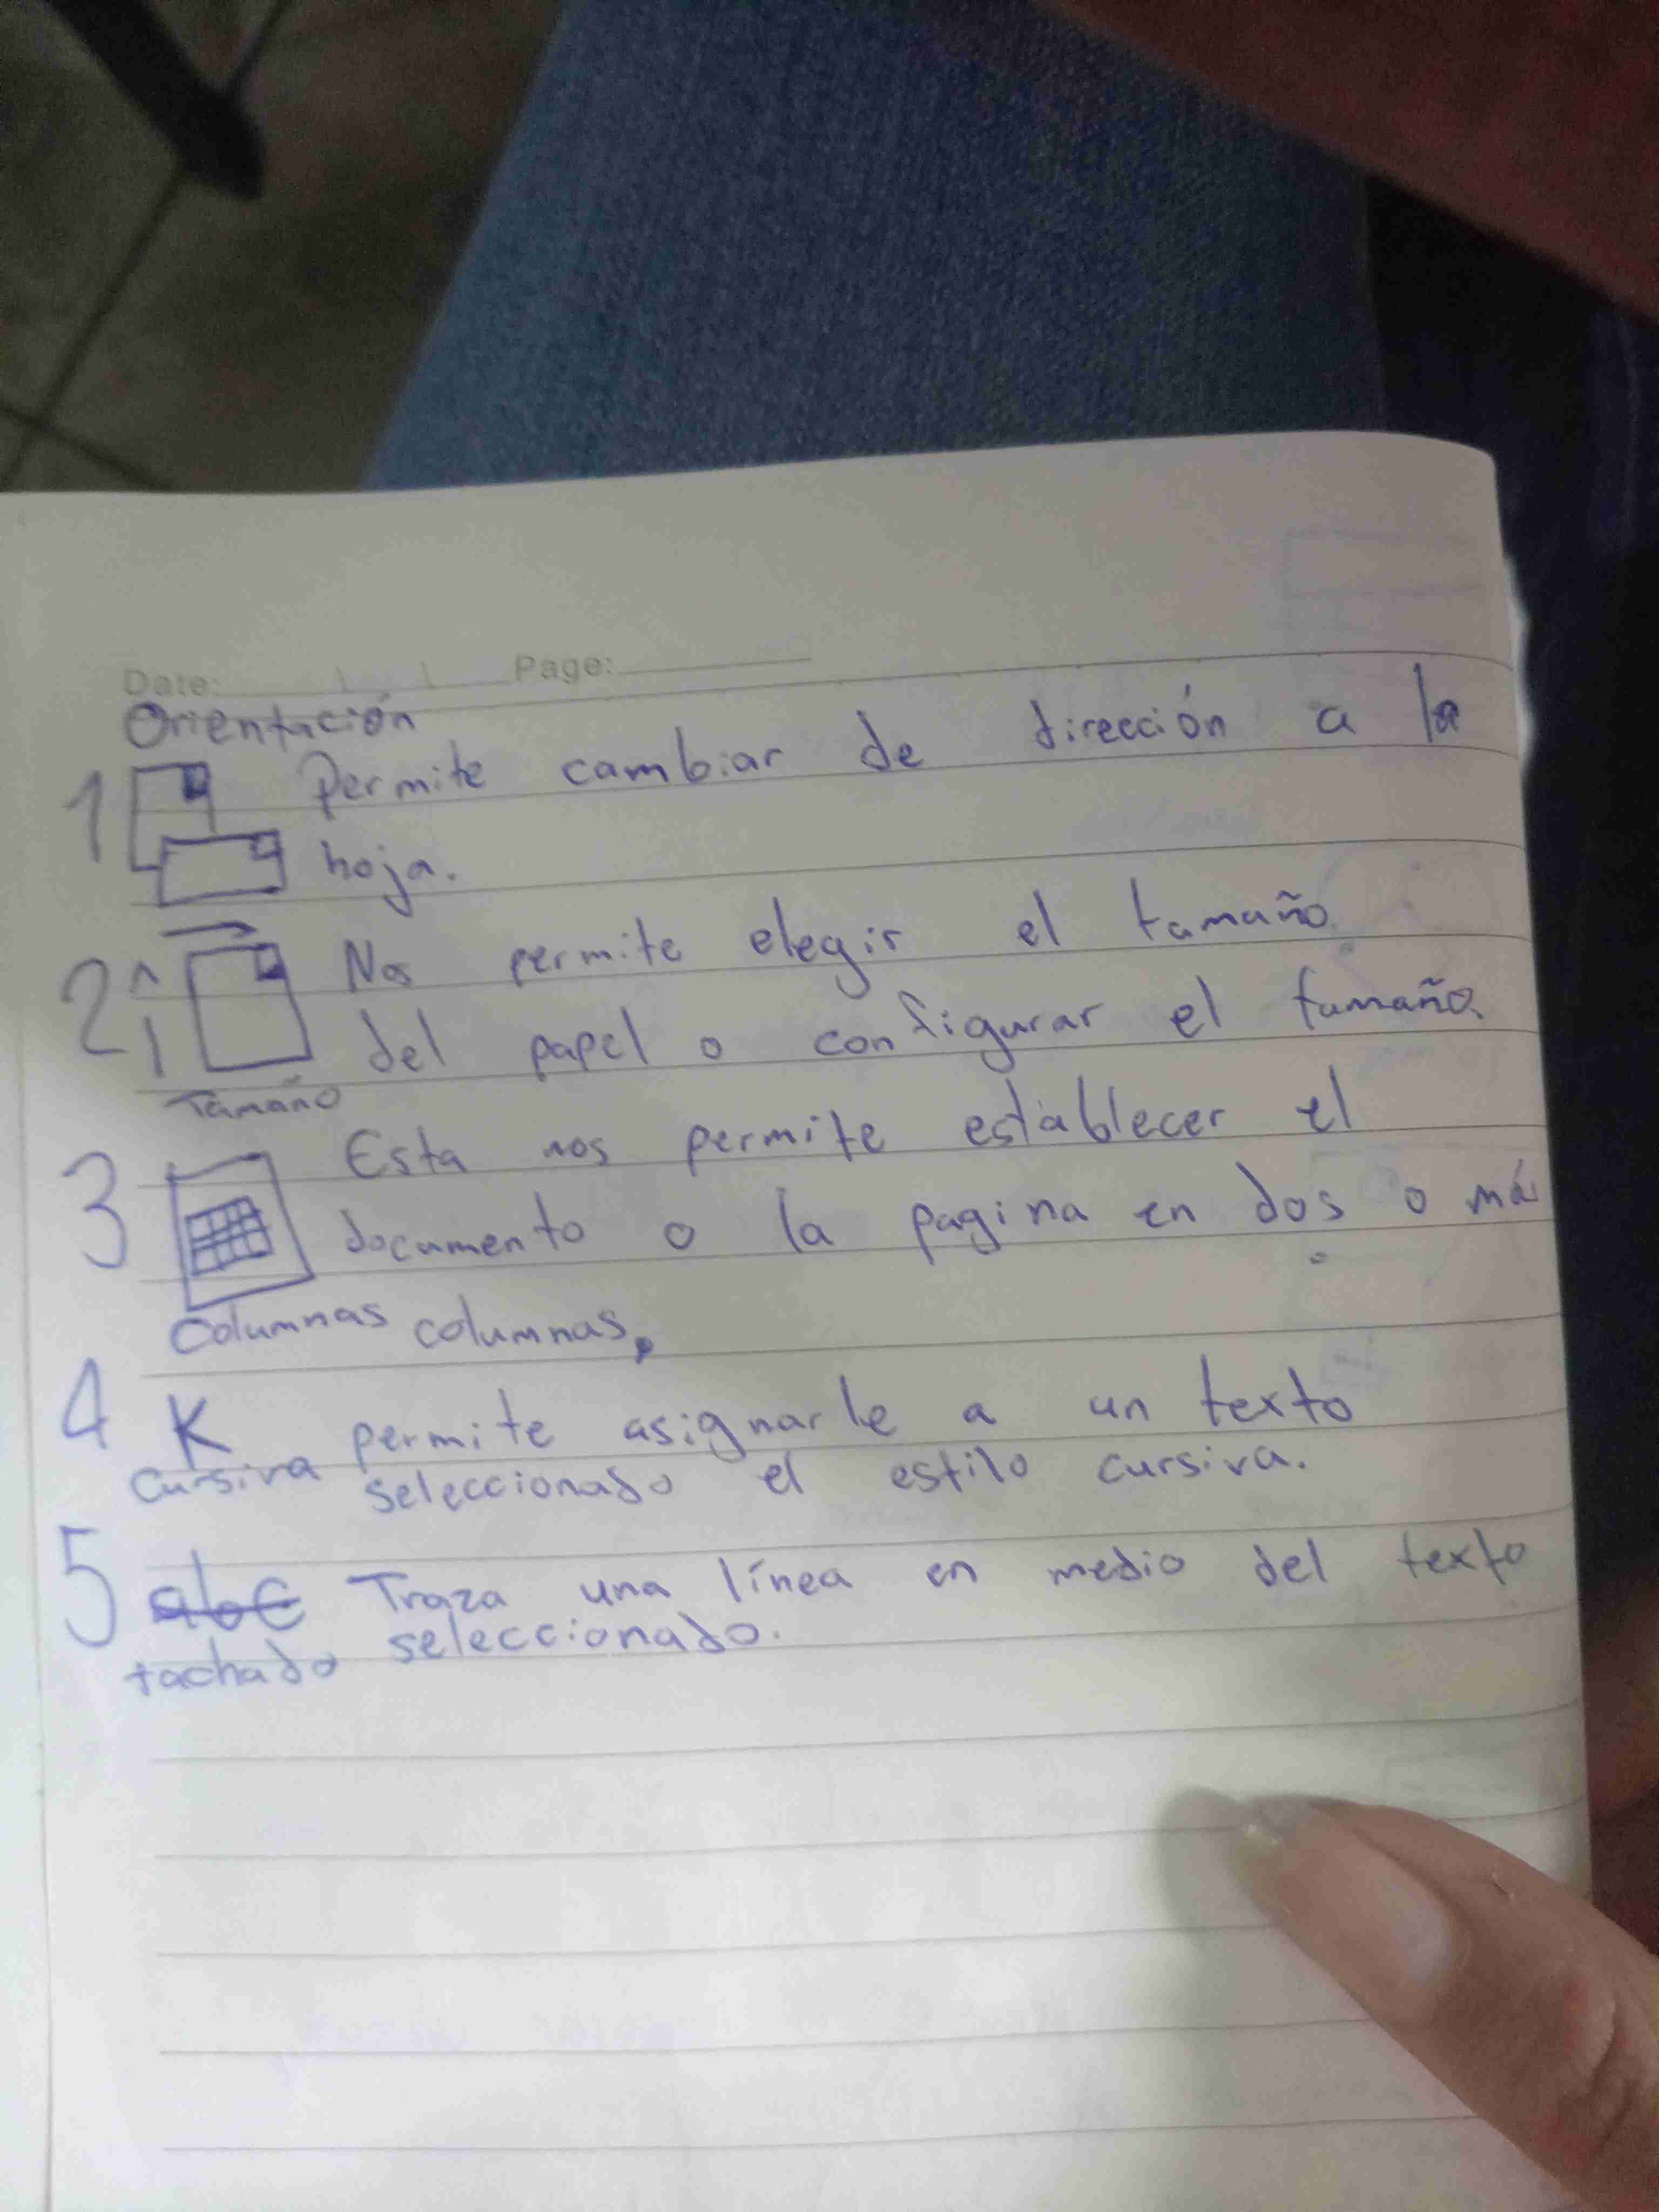 Date: Page:
Orientación
1 Permite cambiar de dirección a la
hoja.
2 Nos permite elegir el tamaño
del papel o configurar el tamaño.
Tamaño
3 Esta nos permite establecer el
documento o la pagina en dos o más
Columnas columnas.
4 K permite asignarle a un texto
Cursiva seleccionado el estilo cursiva.
5 abc Traza una línea en medio del texto
tachado seleccionado.